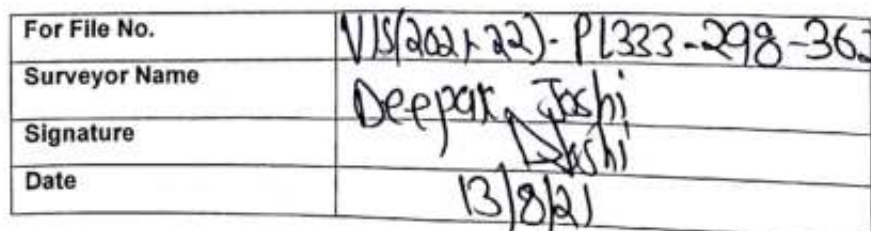 For File No. VIS(2021-22)-PL333-298-363
Surveyor Name Deepak Joshi
Signature Joshi
Date 13/8/21